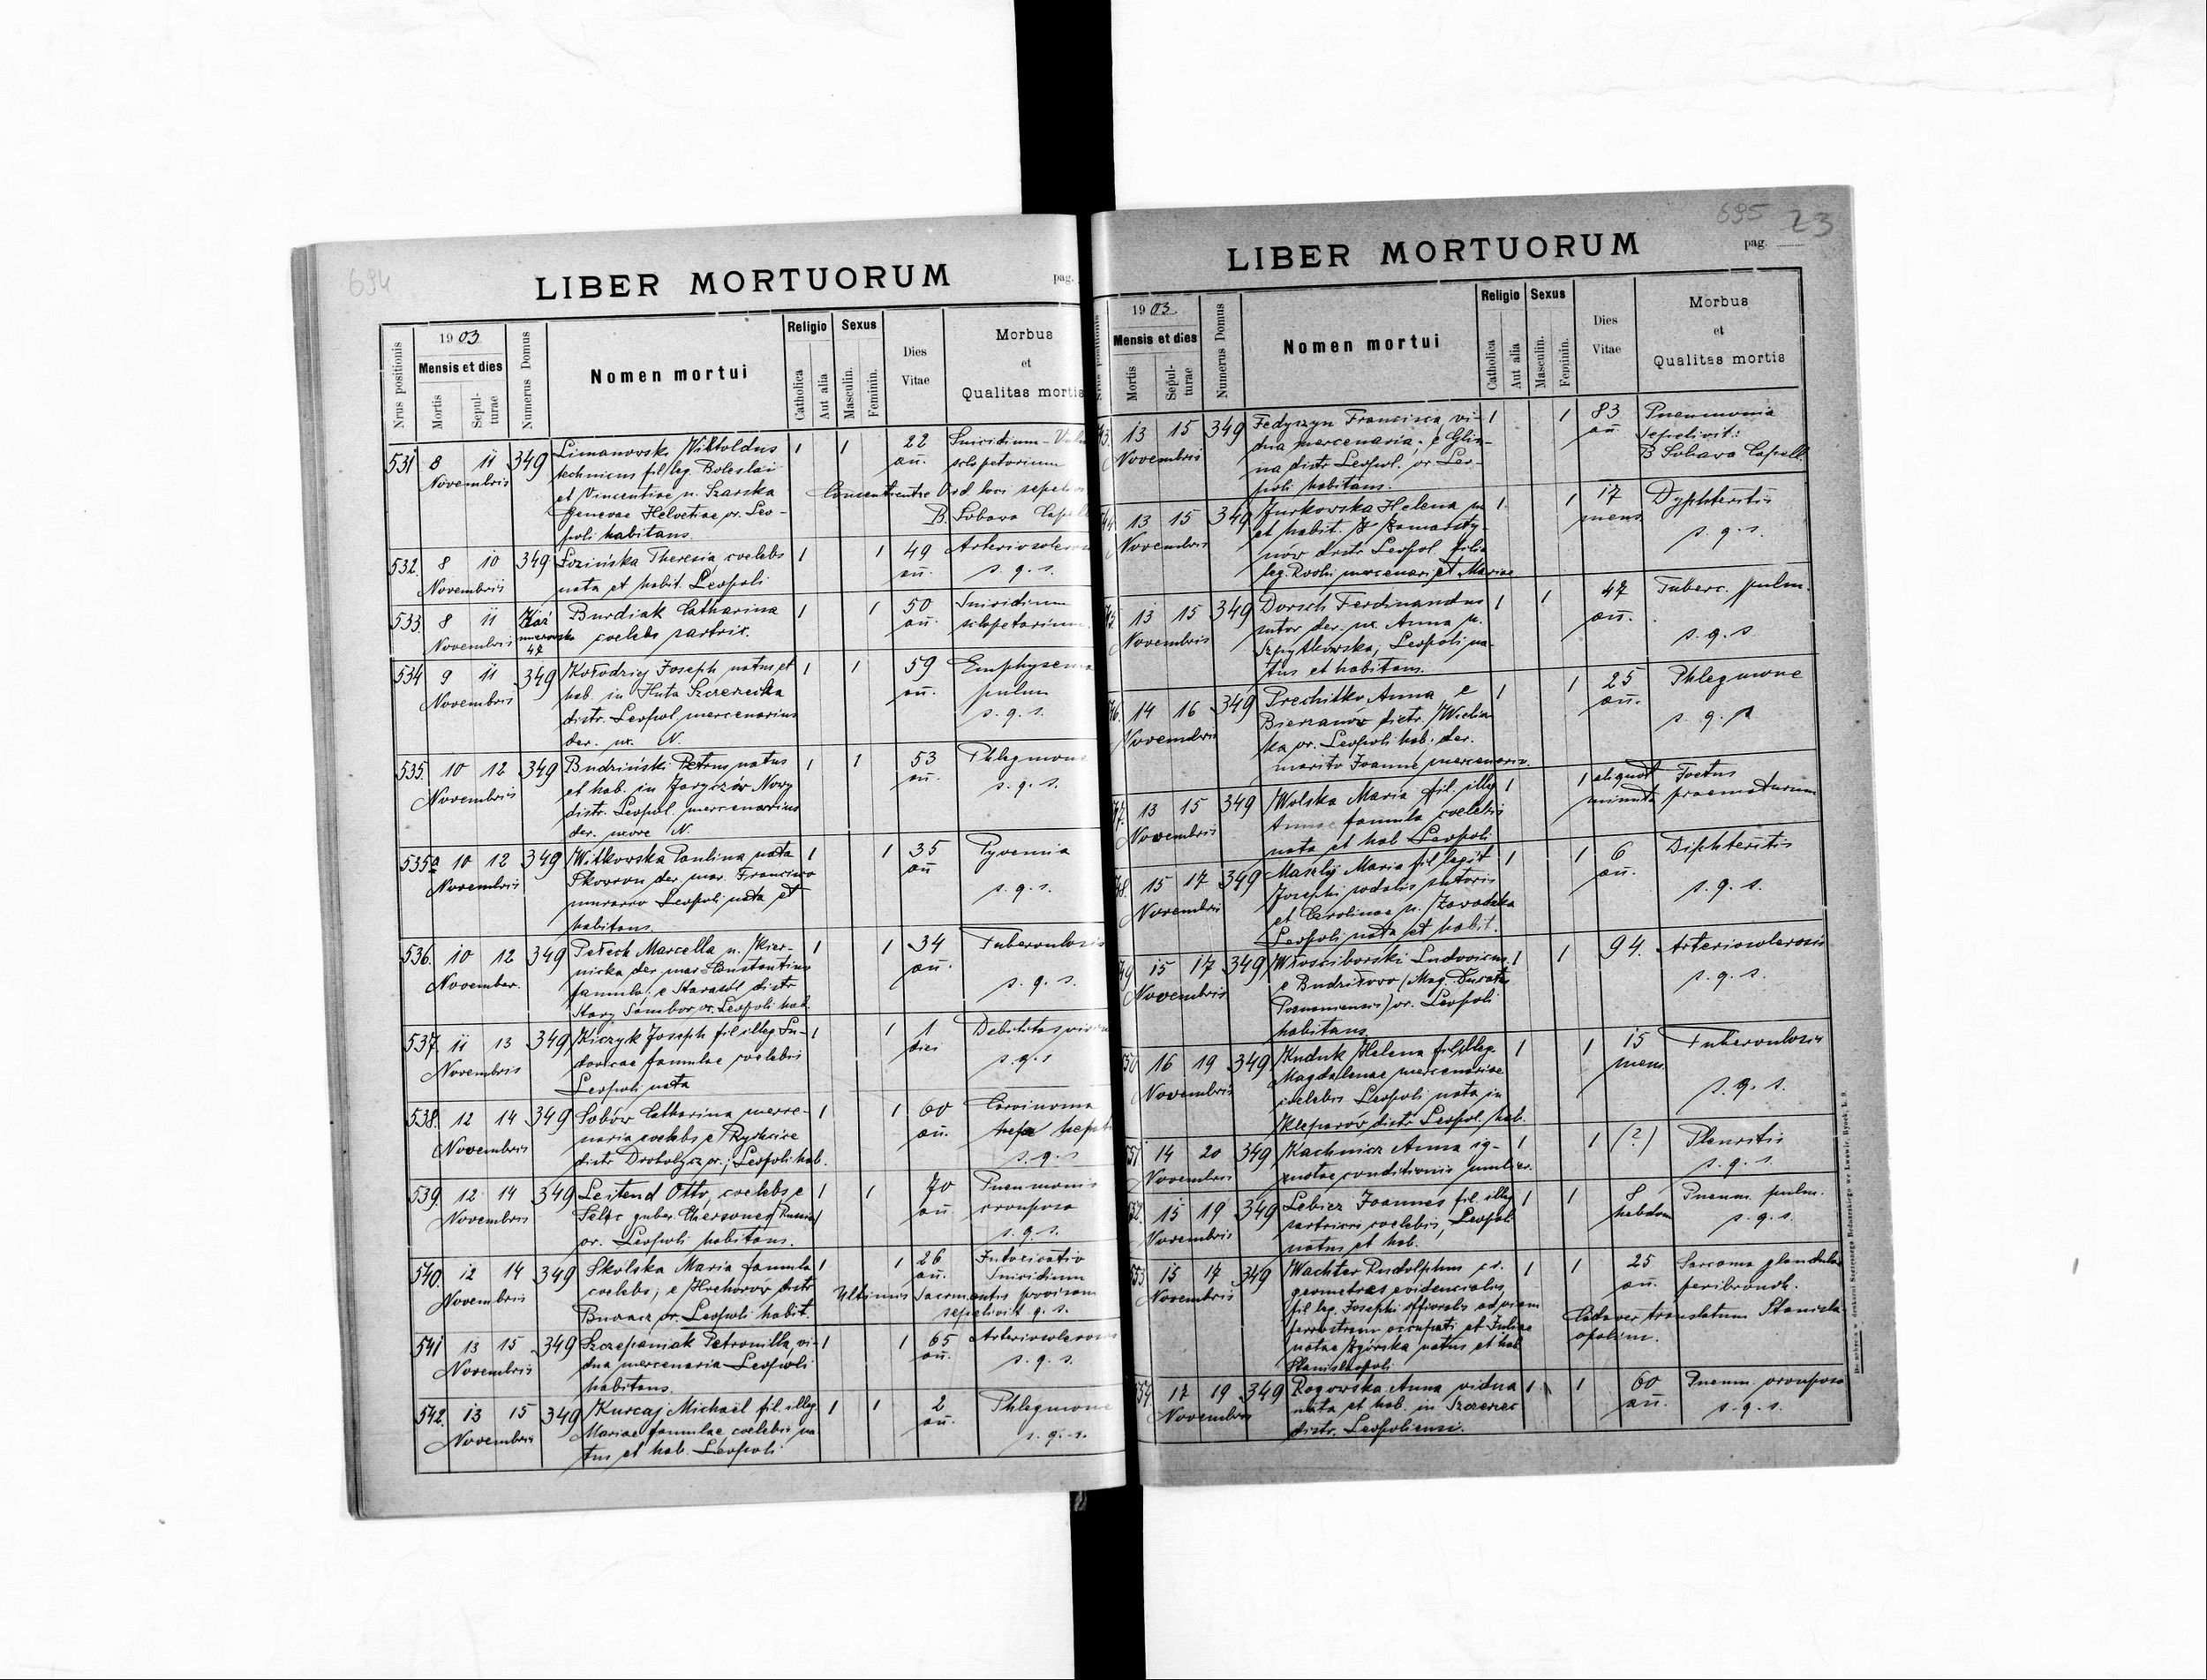 694
LIBER MORTUORUM
pag.
Nrus positionis
1903
Mensis et dies
Mortis
Sepulturae
Numerus Domus
Nomen mortui
Religio
Catholica
Aut alia
Sexus
Masculin.
Feminin.
Dies Vitae
Morbus
et
Qualitas mortis
531 8 11 349 Limanowski Witoldus 1 1 22 Suicidium
Novembris technicus fil. leg. Boleslai an. sclopetarium
et Vincentiae n. Szarska Consentiente Ord loci
Genevae Helvetiae or. Leo-
poli habitans. B. Sobava
532. 8 10 349 Łozińska Theresia, coelebs 1 1 49
Novembris nata et habit. Leopoli an. s. q. s.
533. 8 11 Burdiak Catharina 1 1 50 Suicidium
Novembris 47 coelebs sartrix. an. sclopetarium
534 9 11 349 Kołodziej Joseph natus et 1 1 59 Emphysema
Novembris hab. in Huta Szczerecka an. pulm
distr. Leopol mercenarius s. q. s.
der. ux. N.
535. 10 12 349 Budziński Petrus natus 1 1 53 Phlegmone
Novembris et hab. in Jaryczów Nowy an. s. q. s.
distr. Leopol. mercenarius
der. uxore N.
535a 10 12 349 Witkowska Paulina nata 1 1 35 Pyoemia
Novembris Skowron der. mar. Francisco an s. q. s.
murario Leopoli nata et
habitans.
536. 10 12 349 Petech Marcella n. Kier- 1 1 34 Tuberculosis
November. nicka der mar Constantino an. s. q. s.
famulo. e Starasól distr
Stary Sambor or. Leopoli hab.
537. 11 13 349 Kiczyk Joseph fil illeg Lu- 1 1 1 Debilitas
Novembris dovicae famulae coelebis diei s. q. s
Leopoli nata
538. 12 14 349 Sobów Catharina merce- 1 1 60 Carcinoma
Novembris naria coelebs e an.
distr Drohobycz or.; Leopoli hab. s. q. s
539. 12 14 349 Leitend Otto, coelebs e 1 1 70 Pneumonia
Novembris guber. Chersones (Russia) an. crouposa
or. Leopoli habitans. s. q. s.
540. 12 14 349 Skolska Maria famula 1 1 26 Intoxicatio
Novembris coelebs; e Hrehorów distr an. Suicidium
or. Leopoli habit. Ultimis Sacramentis provisam
sepelivit q. s.
541 13 15 349 Szczepaniak Petronilla, vi- 1 1 65 Arteriosclerosis
Novembris dua mercenaria Leopoli an. s. q. s.
habitans.
542. 13 15 349 Kurcaj Michaël fil. illeg 1 1 2 Phlegmone
Novembris Mariae famulae coelebis na an. s. q. s.
tus et hab. Leopoli
695 23
LIBER MORTUORUM
pag.
Nrus positionis
1903
Mensis et dies
Mortis
Sepulturae
Numerus Domus
Nomen mortui
Religio
Catholica
Aut alia
Sexus
Masculin.
Feminin.
Dies
Vitae
Morbus
et
Qualitas mortis
13 15 349 Fedyszyn Francisca vi- 1 1 83 Pneumonia
Novembris dua mercenaria; e Glin- an Sepelivit:
na distr Leopol. or Leo- B Sobava Capell.
poli habitans.
13 15 349 Jurkowska Helena n 1 1 17 Dyphteritis
Novembris et habit. mens. s. q. s.
nów distr Leopol. filia
leg. Rochi mercenarii et Mariae
13 15 349 Dorsch Ferdinandus 1 1 47 Tuberc. pulm.
Novembris sutor der. ux. Anna n. an. s. q. s
Szpytkowska, Leopoli na-
tus et habitans.
14 16 349 Prechitko Anna, e 1 1 25 Phlegmone
Novembris Bierzanów distr. Wielicz an. s. q. s
ka or. Leopoli hab. der.
marito Joanne mercenario.
13 15 349 Wolska Maria fil. illeg 1 1 aliquot Foetus
Novembris Annae famula coelebis minuta praematurum
nata et hab Leopoli
15 17 349 Maszly Maria fil legit 1 1 6 Diphteritis
Novembris Josephi sodalis sutoris an. s. q. s.
et Carolinae n. Zawadzka
Leopoli nata et habit.
15 17 349 Włosciborski Ludovicus. 1 1 94. Arteriosclerosis
Novembris e Budziłowo (Mag. Ducatu s. q. s.
Posnaniensis) or. Leopoli
habitans
16 19 349 Kuduk Helena fil illeg. 1 1 15 Tuberculosis
Novembris Magdalenae mercenariae mens. s. q. s.
coelebis Leopoli nata in
Kleparów distr Leopol. hab.
14 20 349 Kachnicz Anna ig- 1 1 (?) Pleuritis
Novembris notae conditionis mulier. s. q. s.
15 19 349 Lebicz Joannes fil. illeg 1 1 8 Pneum. pulm.
Novembris sartricis coelebis, Leopoli hebdom s. q. s.
natus et hab.
15 17 349 Wachter Rudolphus 1 1 25 Sarcoma glandulae
Novembris geometras evidencialis an. peribronch.
fil leg. Josephi officialis ad viam Cadaver translatum Stanisla-
ferrostream occupati et Juliae opolim.
natae Zgórska natus et hab
Stanislaopoli
17 19 349 Rogowska Anna vidua 1 1 60 Pneum. crouposa
Novembris nata et hab. in Szczerec an. s. q. s.
distr. Leopoliensi.